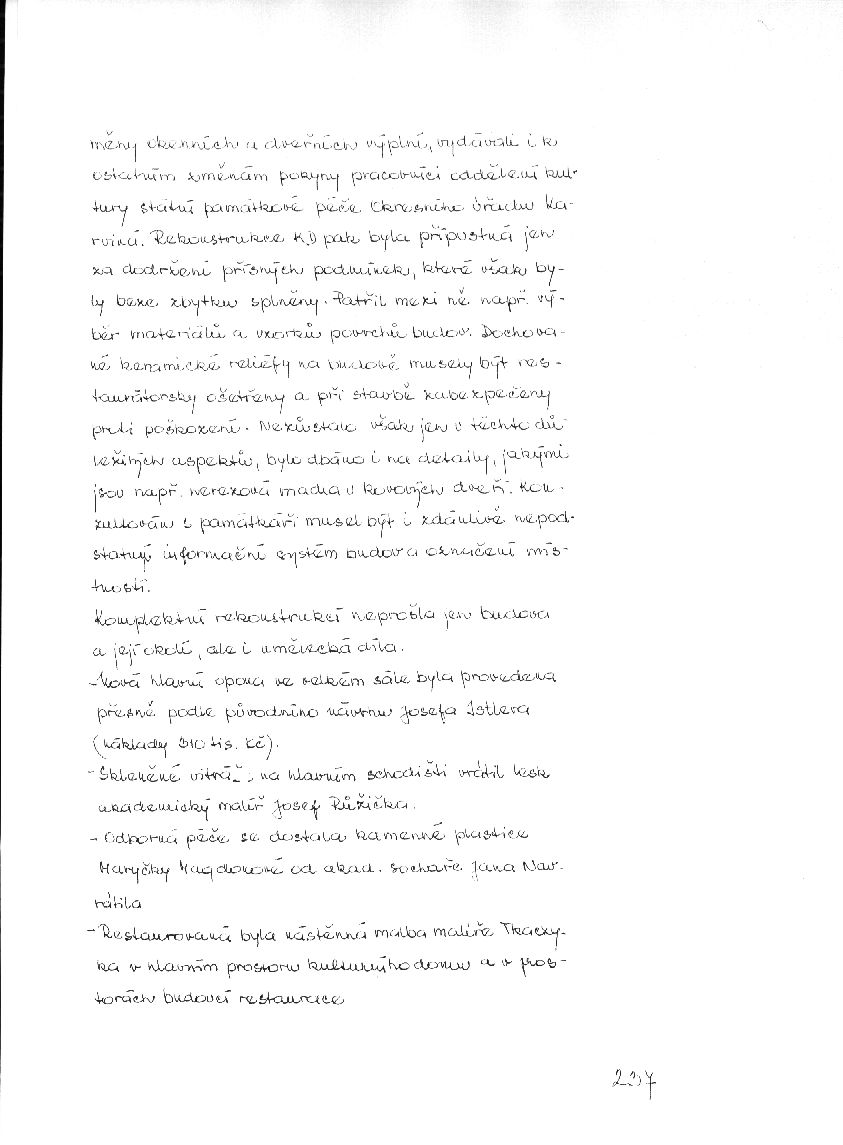 měny okenních a dveřních výplní, vydávali i k
ostatním změnám pokyny pracovníci oddělení kul-
tury státní památkové péče Okresního úřadu Ka-
rviná. Rekonstrukce KD pak byla přípustná jen
za dodržení přísných podmínek, které však by-
ly beze zbytku splněny. Patřil mezi ně např. vý-
běr materiálů a vzorků povrchů budov. Dochova-
né keramické reliéfy na budově musely být res-
taurátorsky ošetřeny a při stavbě zabezpečeny
proti poškození. Nezůstalo však jen u těchto dů
ležitých aspektů, bylo dbáno i na detaily, jakými
jsou např. nerezová madla u kovových dveří. Kon-
zultován s památkáři musel být i zdánlivě nepod-
statný informační systém budov a označení mís-
tností.
Komplektní rekonstrukcí neprošla jen budova
a její okolí, ale i umělecká díla.
- Nová hlavní opona ve velkém sále byla provedena
přesně podle původního návrhu Josefa Istlera
(náklady 310 tis. Kč).
- Skleněné vitráži na hlavním schodišti vrátil lesk
akademický malíř Josef Růžička.
- Odborná péče se dostala kamenné plastice
Maryčky Magdonové od akad. sochaře Jana Nav-
rátila
- Restaurovaná byla nástěnná malba malíře Tkaczy-
ka v hlavním prostoru kulturního domu a v pros-
torách budoucí restaurace
237